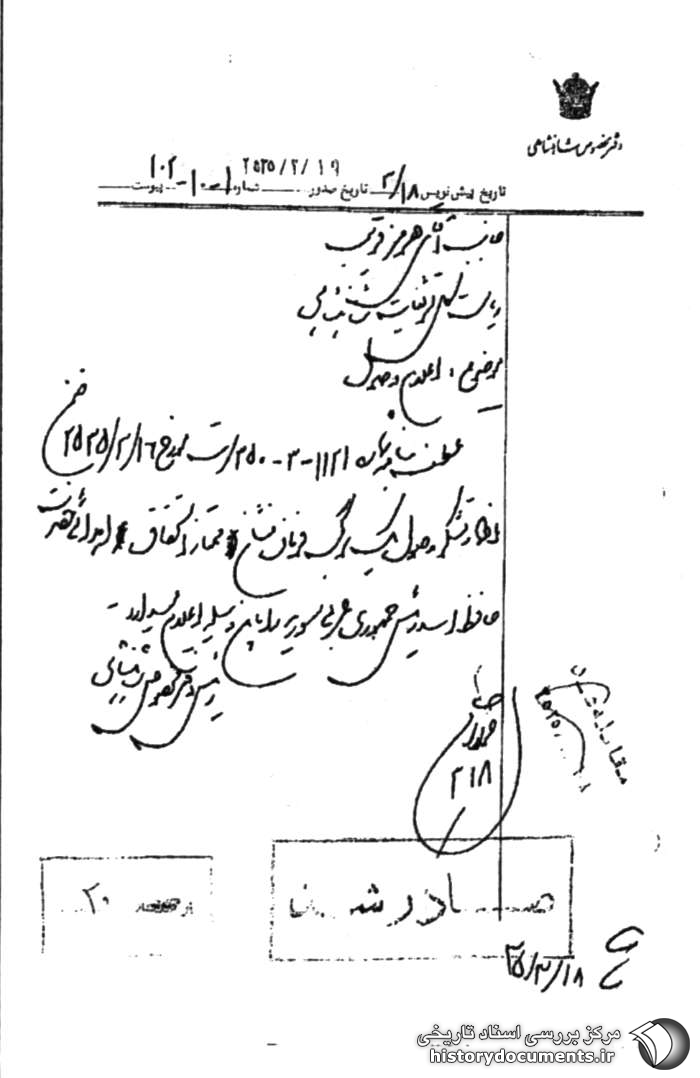 دفتر مخصوص شاهنشاهی
تاریخ پیش‌نویس ۲/۱۸ تاریخ صدور ۲۵۳۵/۲/۱۹ شماره ۱-۱۰۲ پیوست
جناب آقای هرمز قریب
ریاست کل تشریفات شاهنشاهی
موضوع: اعلام وصول
عطف بنامه شماره ۱۱۲۱-۳-۲۵۰/ت مورخ ۲۵۳۵/۲/۱۶ ضمن
اظهار تشکر وصول یک برگ فرمان نشان ممتاز اهدائی حضرت
حافظ اسد رئیس جمهوری عربی سوریه را باین وسیله اعلام میدارد
رئیس دفتر مخصوص شاهنشاهی
۲۱۸
صادر شد
۲۰
۳۵/۲/۱۸
مرکز بررسی اسناد تاریخی
historydocuments.ir